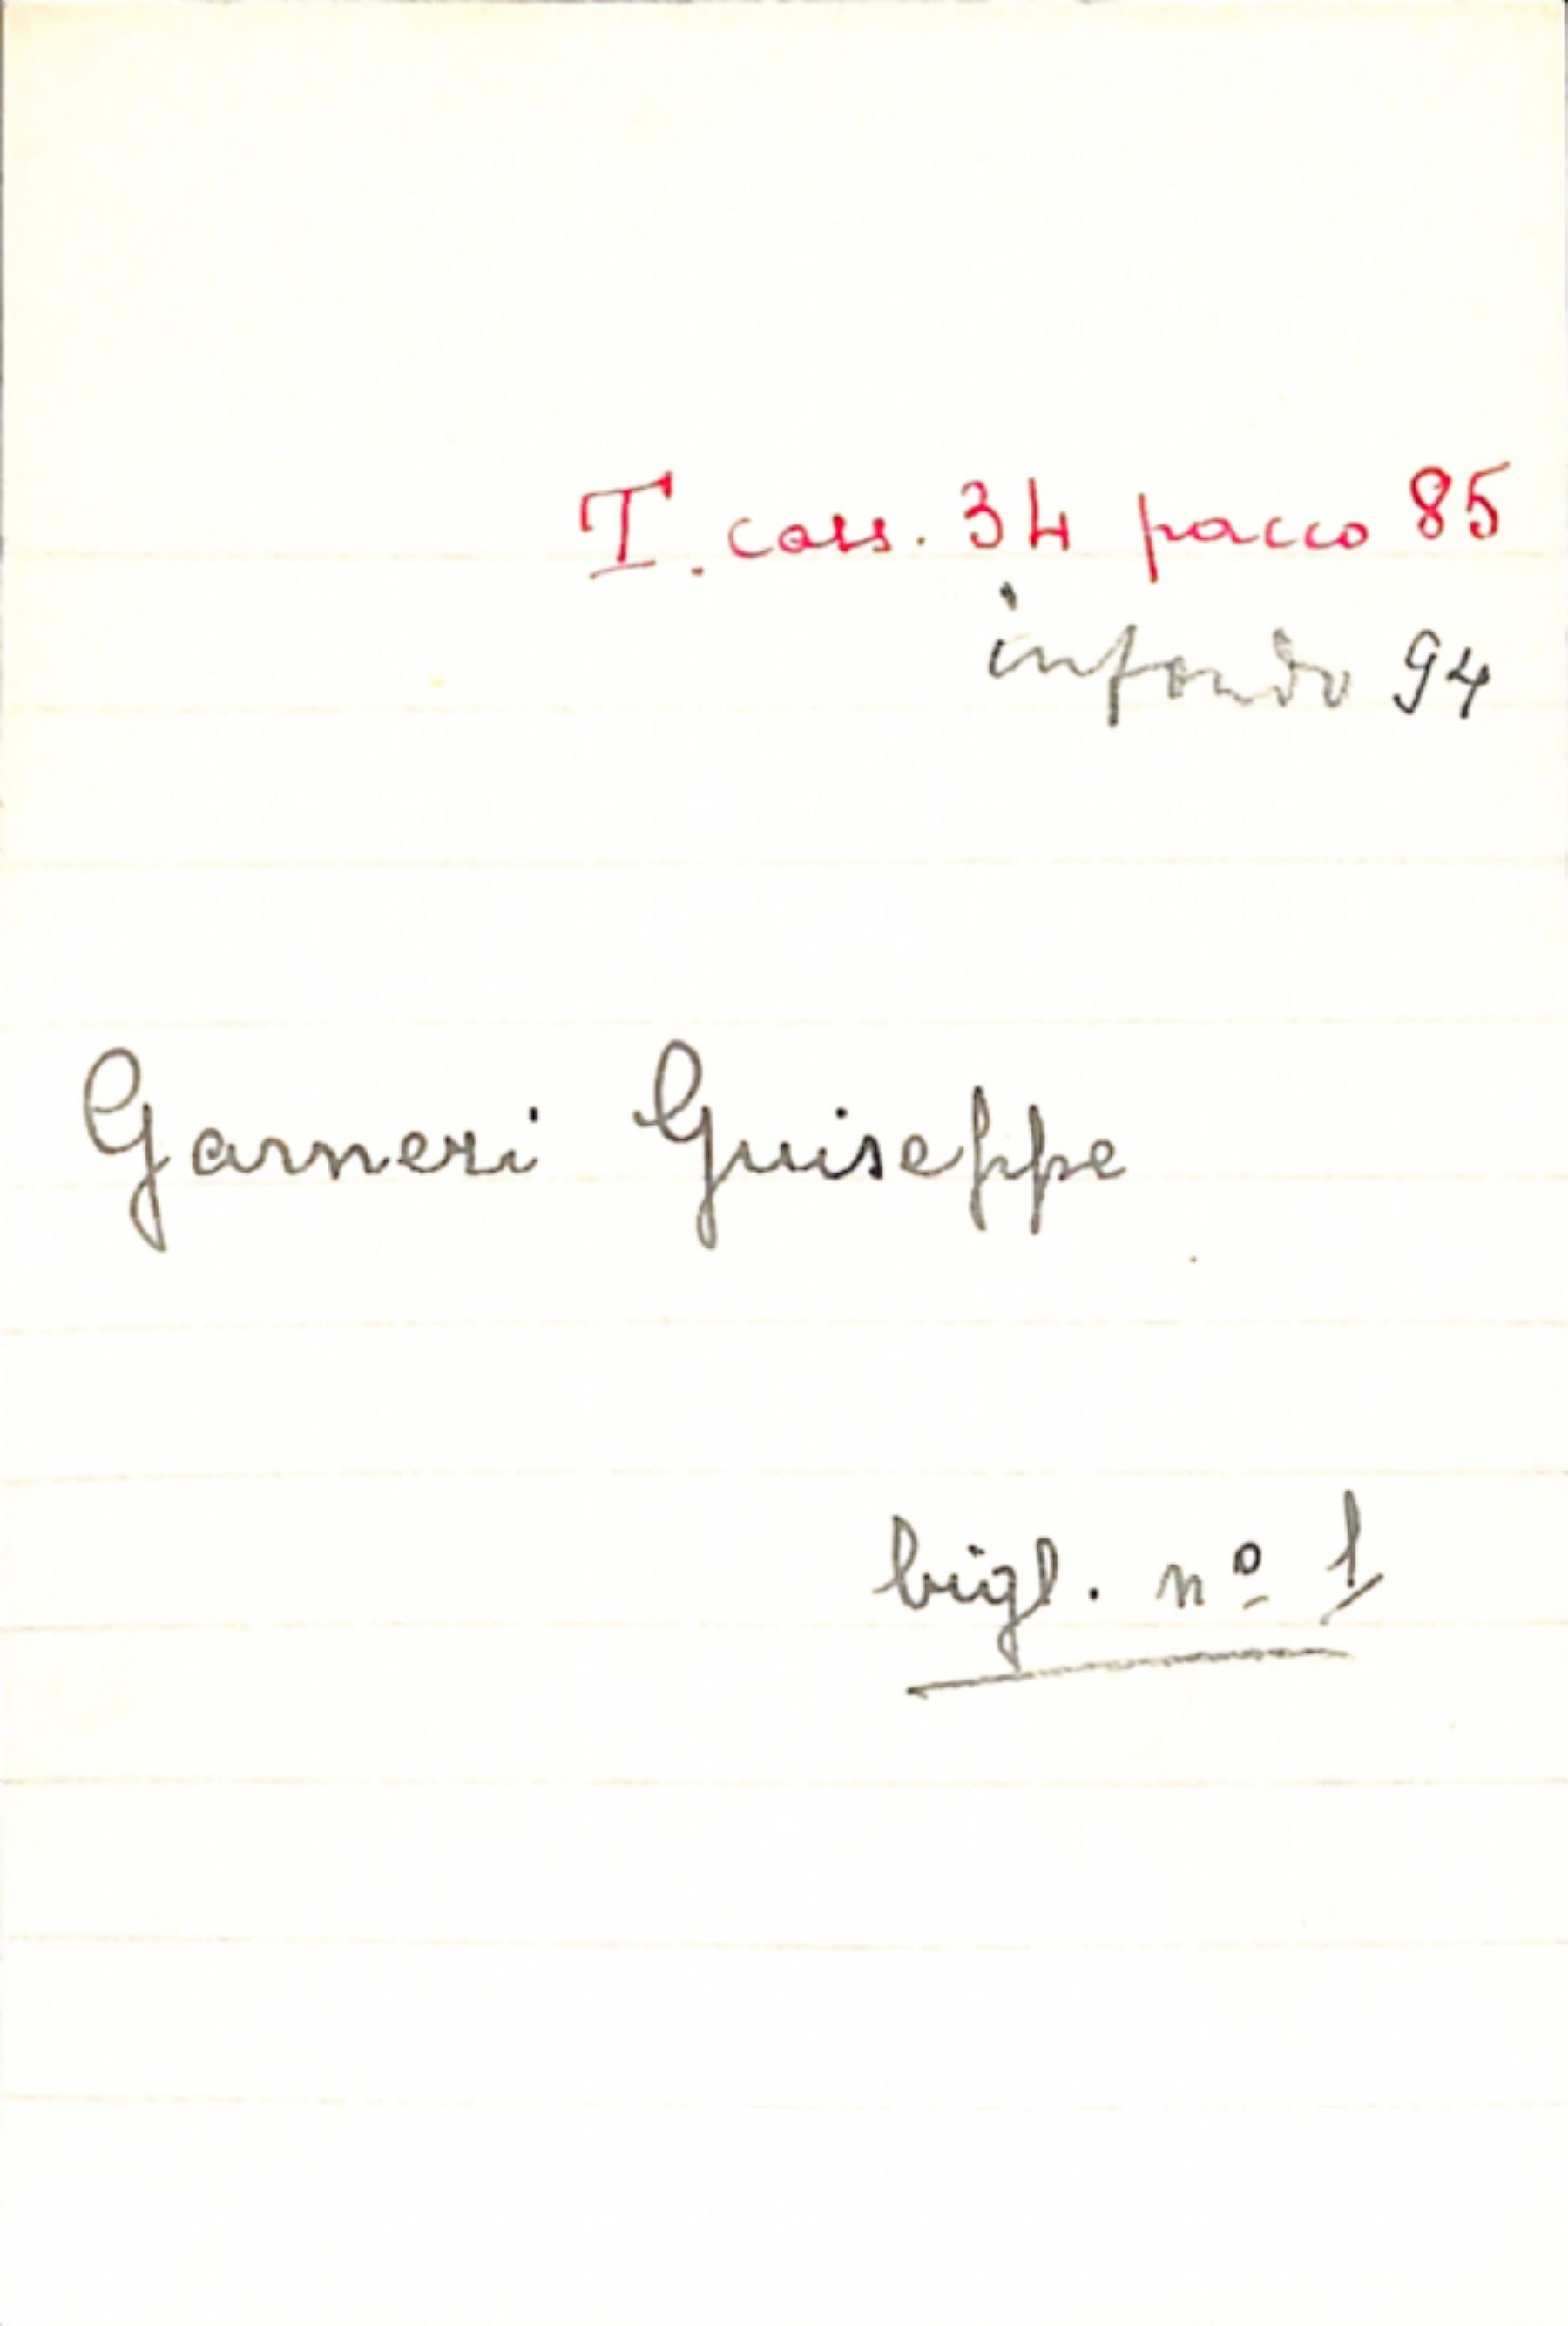 T. cass. 34 pacco 85
infondo 94
Garneri Guiseppe
bigl. nº 1